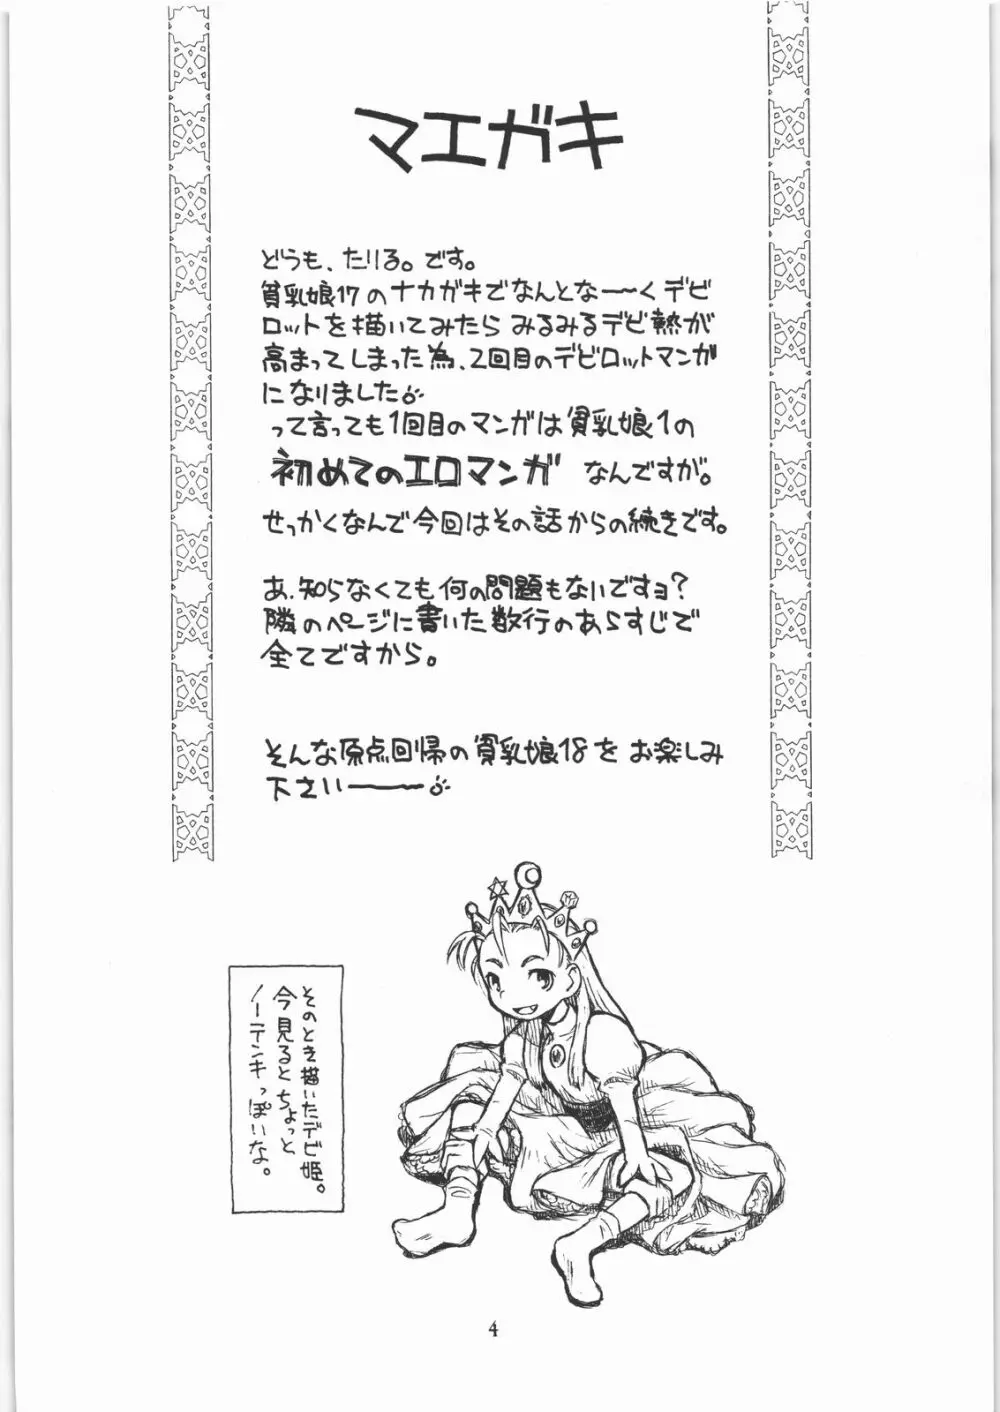 マエガキ
どうも、たりる。です。
貧乳娘17のナカガキでなんとな〜くデビ
ロットを描いてみたら みるみるデビ熱が
高まってしまった為、2回目のデビロットマンガ
になりました
って言っても1回目のマンガは貧乳娘1の
初めてのエロマンガ なんですが。
せっかくなんで今回はその話からの続きです。
あ、知らなくても何の問題もないですョ?
隣のページに書いた数行のあらすじで
全てですから。
そんな原点回帰の貧乳娘18をお楽しみ
下さい――〜
そのとき描いたデビ姫。
今見るとちょっと
ノーテンキっぽいな。
4